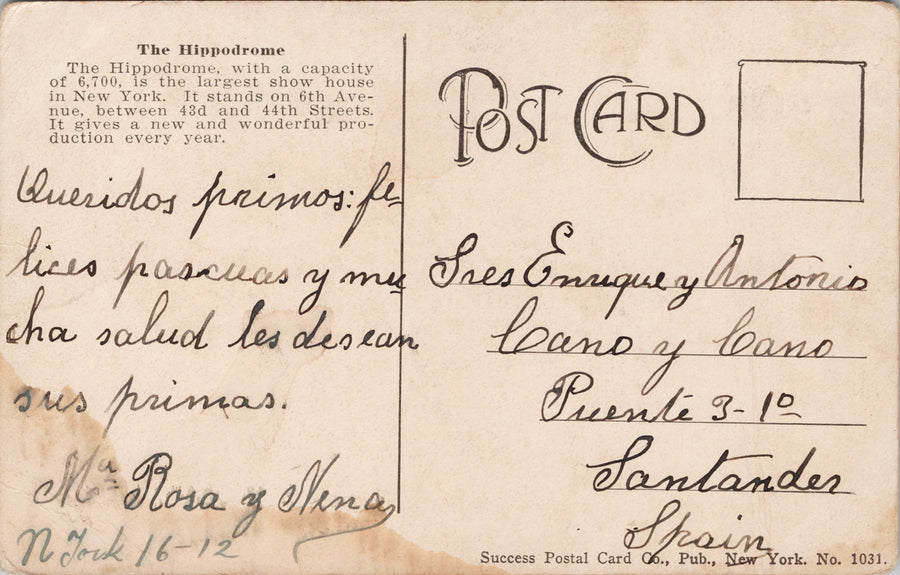 The Hippodrome
The Hippodrome, with a capacity
of 6,700, is the largest show house
in New York. It stands on 6th Ave-
nue, between 43d and 44th Streets.
It gives a new and wonderful pro-
duction every year.
Queridos primos: fe-
lices pascuas y mu
cha salud les desean
sus primas.
Mª Rosa y Nena
N York 16-12
POST CARD
Sres Enrique y Antonio
Cano y Cano
Puente 3-1º
Santander
Spain
Success Postal Card Co., Pub., New York. No. 1031.